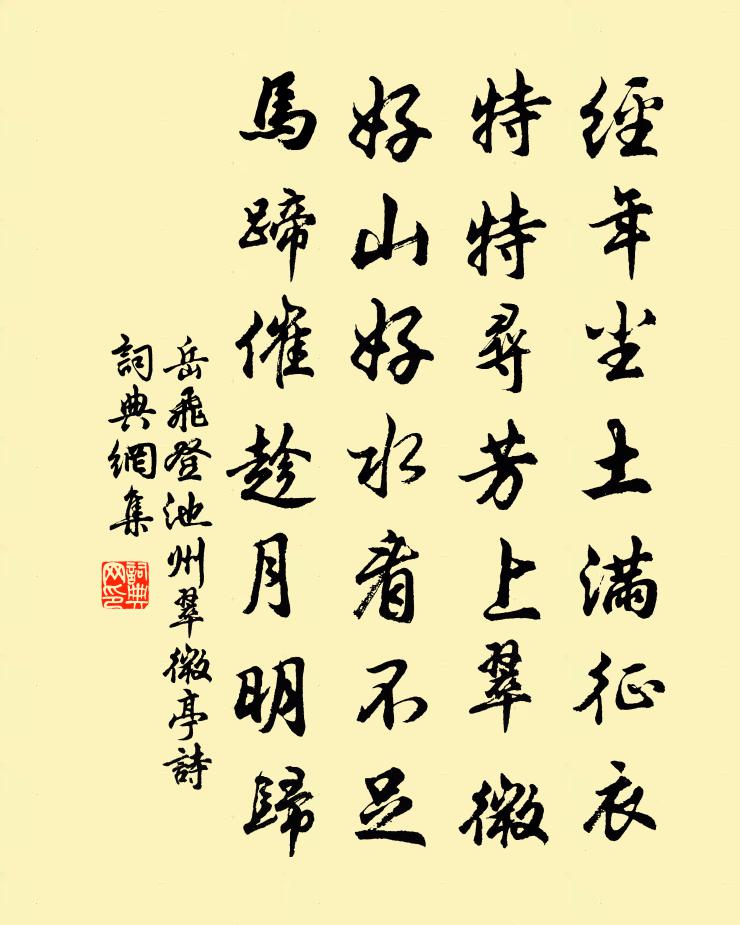 經年尘土滿征衣
特特尋芳上翠微
好山好水看不足
馬蹄催趁月明歸
岳飛登池州翠微亭詩
詞典網集
詞典
网印